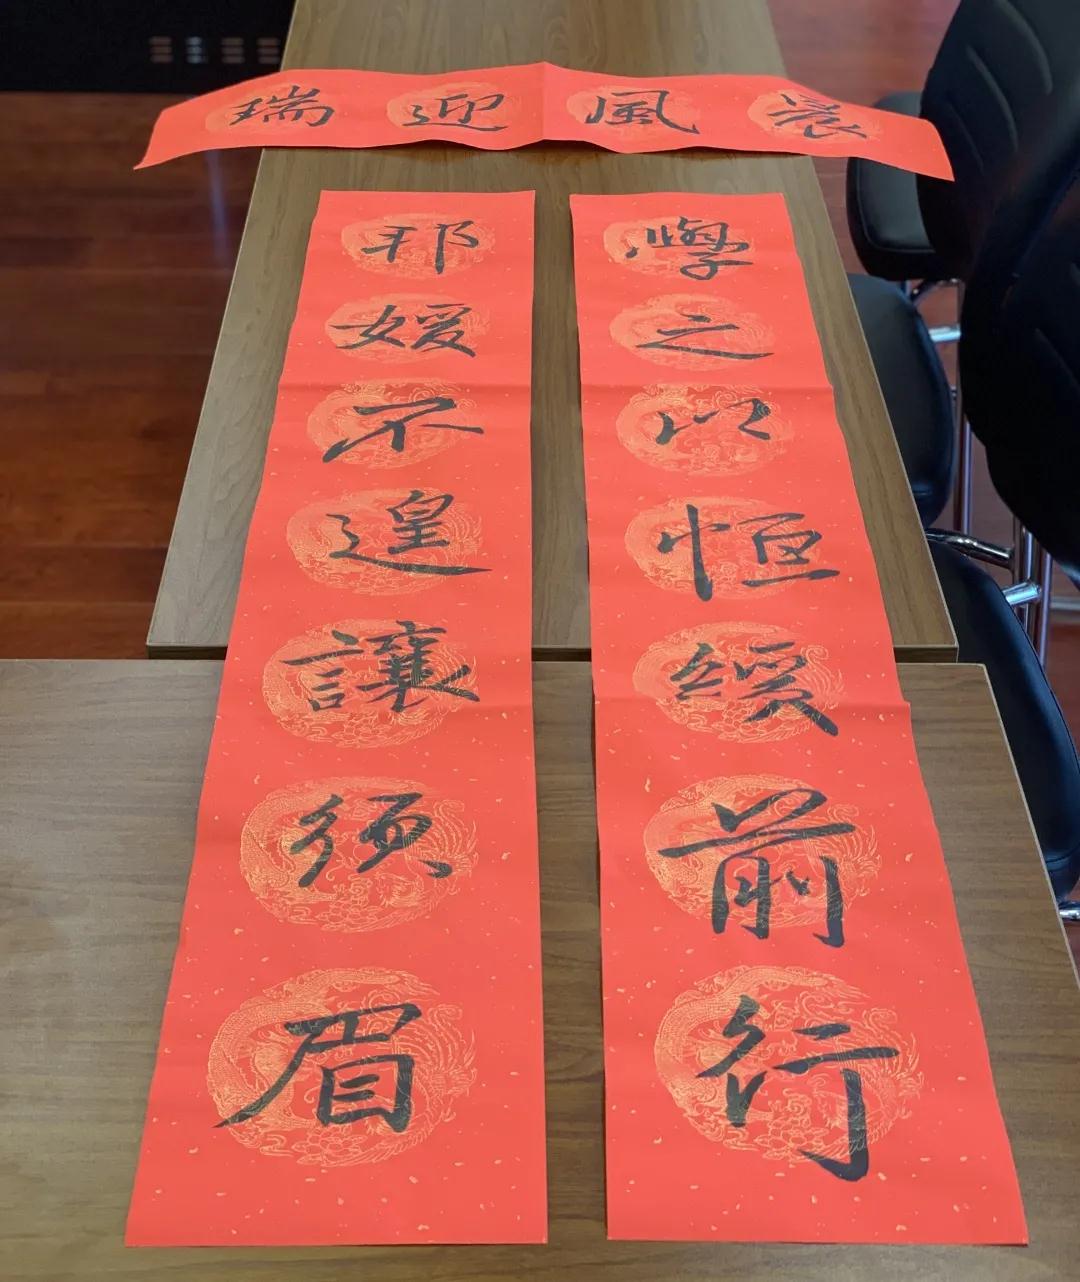 晨風迎瑞
學之以恒緩前行
邦媛不遑讓須眉